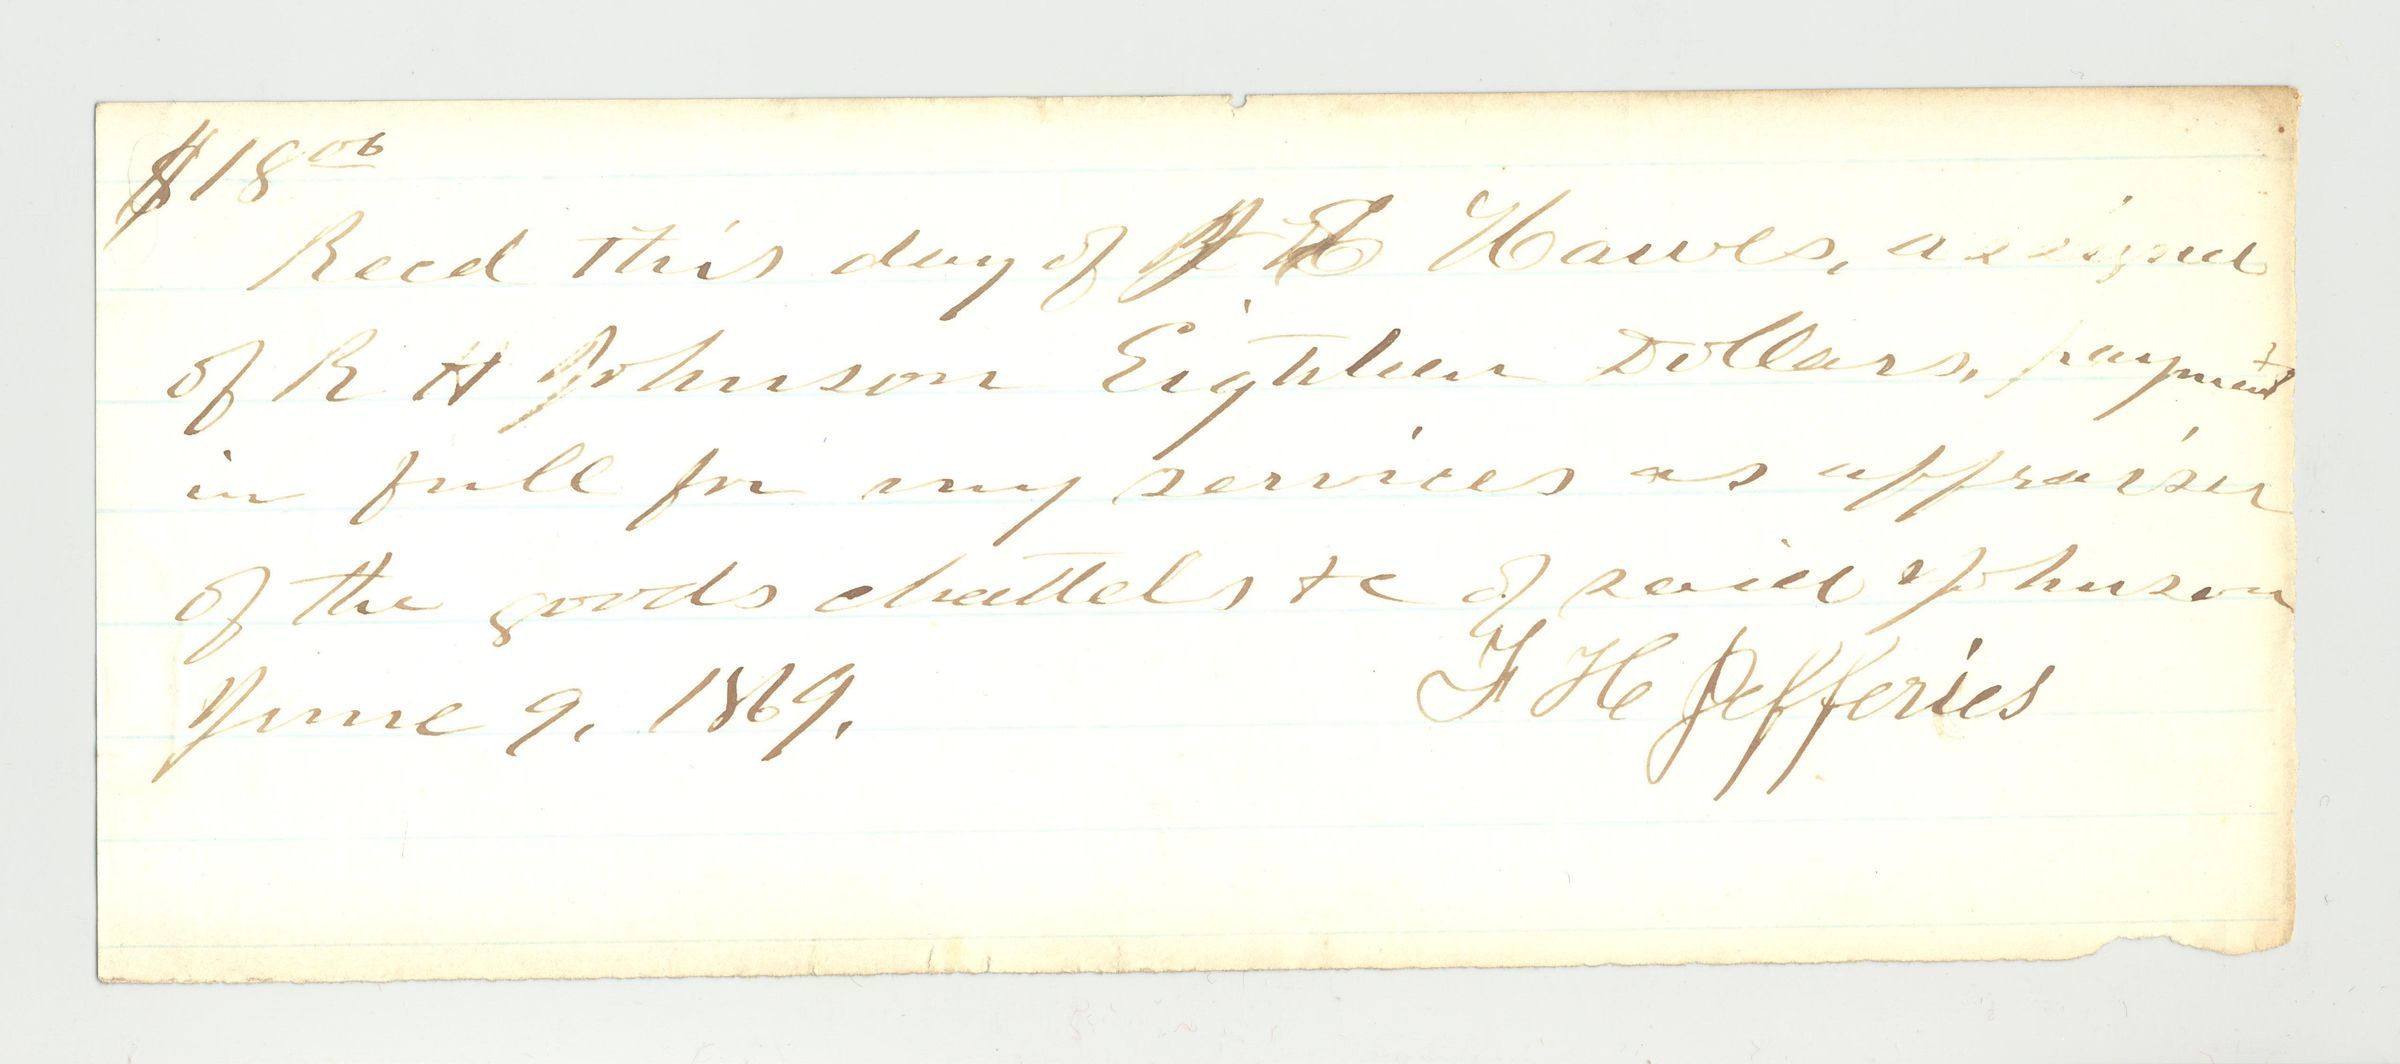 $18 00
Recd this day of Hawes, assignee
of R H Johnson Eighteen Dollars, payment
in full for my services as appraiser
of the goods chattels &c of said Johnson
June 9, 1869. F H Jefferies